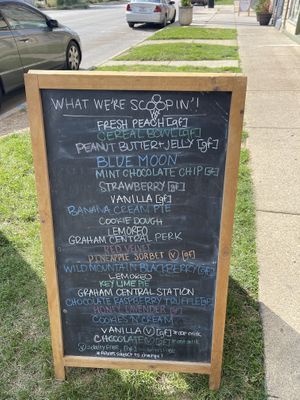 WHAT WE'RE SCOOPIN'!
FRESH PEACH [gf]
CEREAL BOWL [gf]
PEANUT BUTTER + JELLY [gf]
BLUE MOON
MINT CHOCOLATE CHIP [gf]
STRAWBERRY [gf]
VANILLA [gf]
BANANA CREAM PIE
COOKIE DOUGH
LEMOREO
GRAHAM CENTRAL PERK
RED VELVET
PINEAPPLE SORBET (V) [gf]
WILD MOUNTAIN BLACKBERRY [gf]
LEMOREO
KEY LIME PIE
GRAHAM CENTRAL STATION
CHOCOLATE RASPBERRY TRUFFLE [gf]
HONEY LAVENDER [gf]
COOKIES 'N CREAM
VANILLA (V) [gf] *oat milk
CHOCOLATE (V) [gf] *oat milk